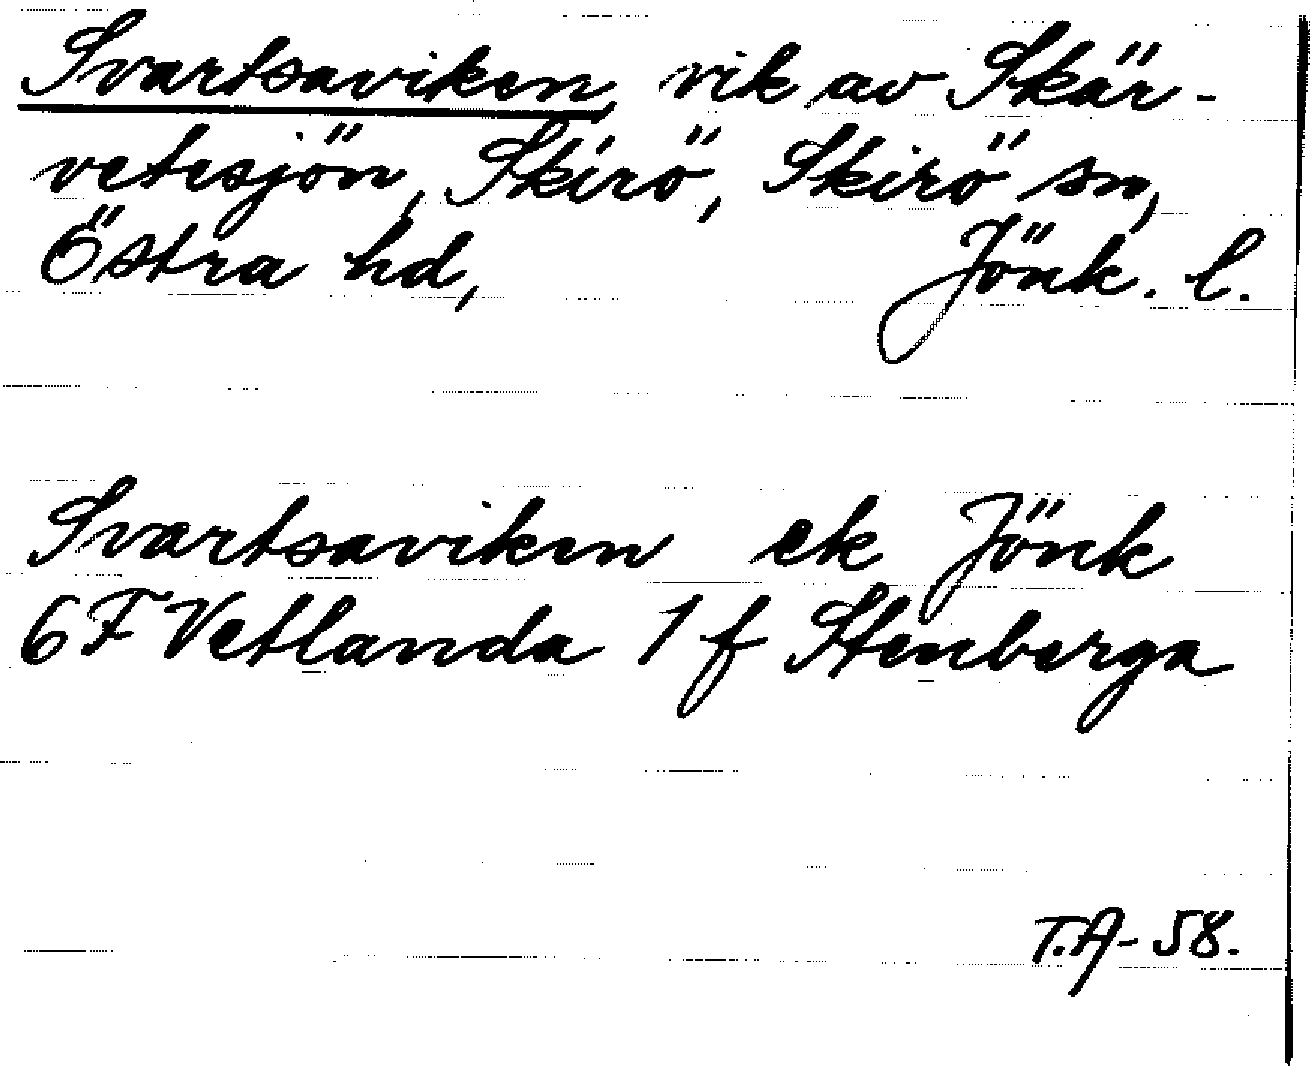 Svartsaviken, vik av Skär-
vetesjön, Skirö, Skirö sn,
Östra hd, Jönk. l.
Svartsaviken ek Jönk
6 F Vetlanda 1 f Stenberga
T.A-58.